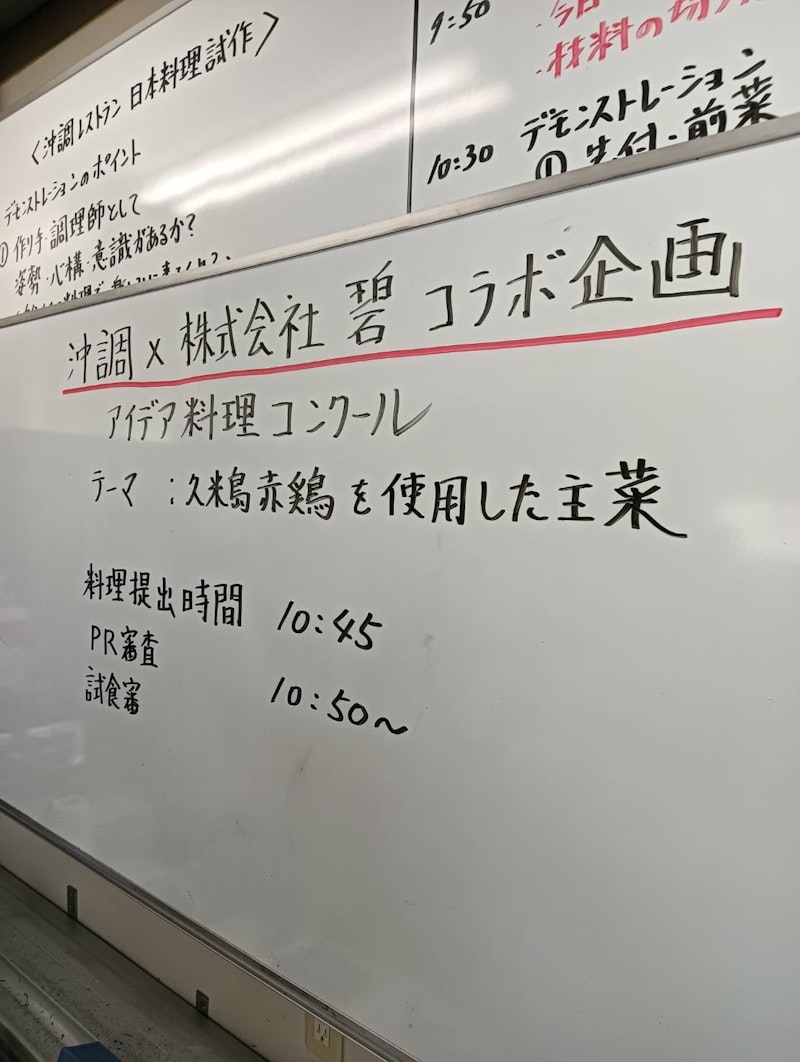 〈沖調レストラン 日本料理試作〉
デモンストレーションのポイント
① 作り手・調理師として
姿勢・心構・意識があるか?
9:50
・今日
・材料の切り
10:30 デモンストレーション
① 先付・前菜
沖調 × 株式会社 碧 コラボ企画
アイデア料理コンクール
テーマ :久米島赤鶏を使用した主菜
料理提出時間 10:45
PR審査
試食審 10:50～